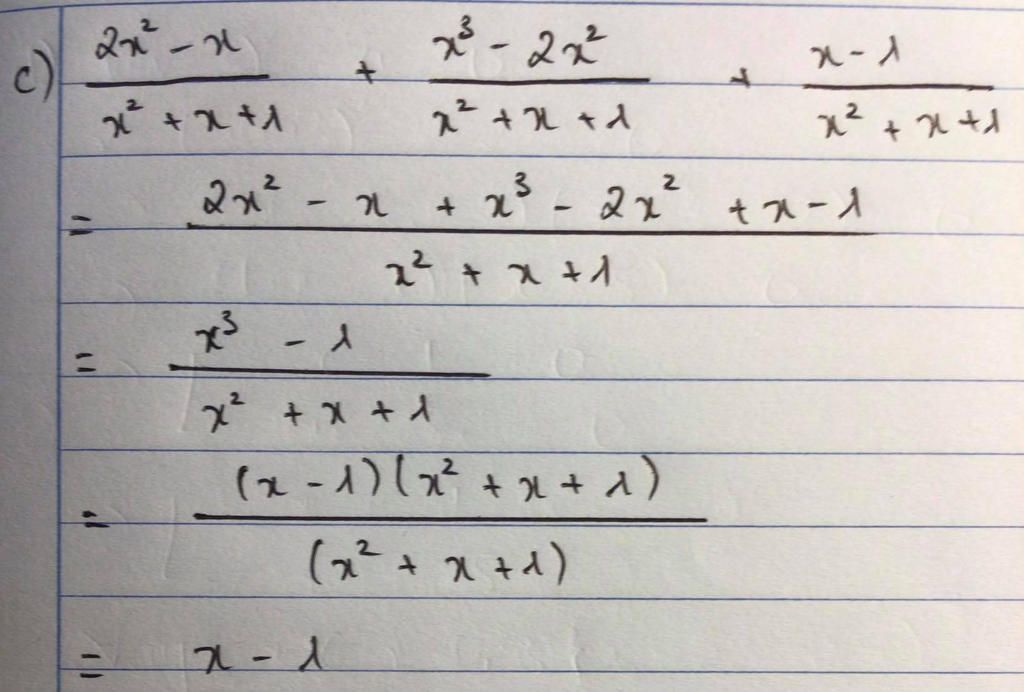 c) (2x² - x)/(x² + x + 1) + (x³ - 2x²)/(x² + x + 1) + (x - 1)/(x² + x + 1)
= (2x² - x + x³ - 2x² + x - 1)/(x² + x + 1)
= (x³ - 1)/(x² + x + 1)
= (x - 1)(x² + x + 1)/(x² + x + 1)
= x - 1